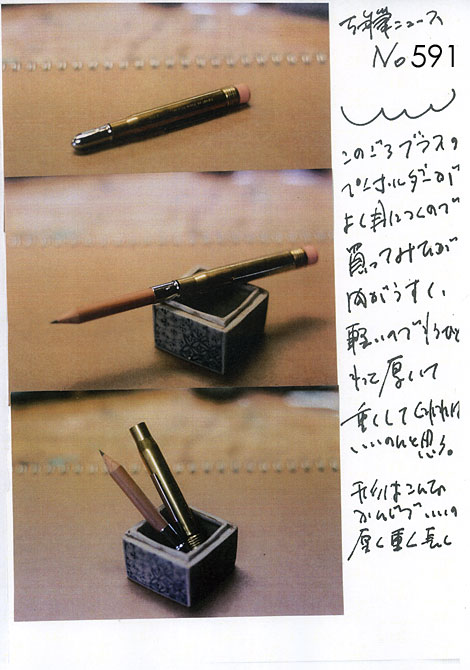 ニュース
No 591
このごろブラスの
ペンホルダーが
よく目につくので
買ってみたが
肉がうすく、
軽いのでもうひ
厚くて
重くして
いいのにと思う。
形はこんな
かんじでいいの
厚く重く長く